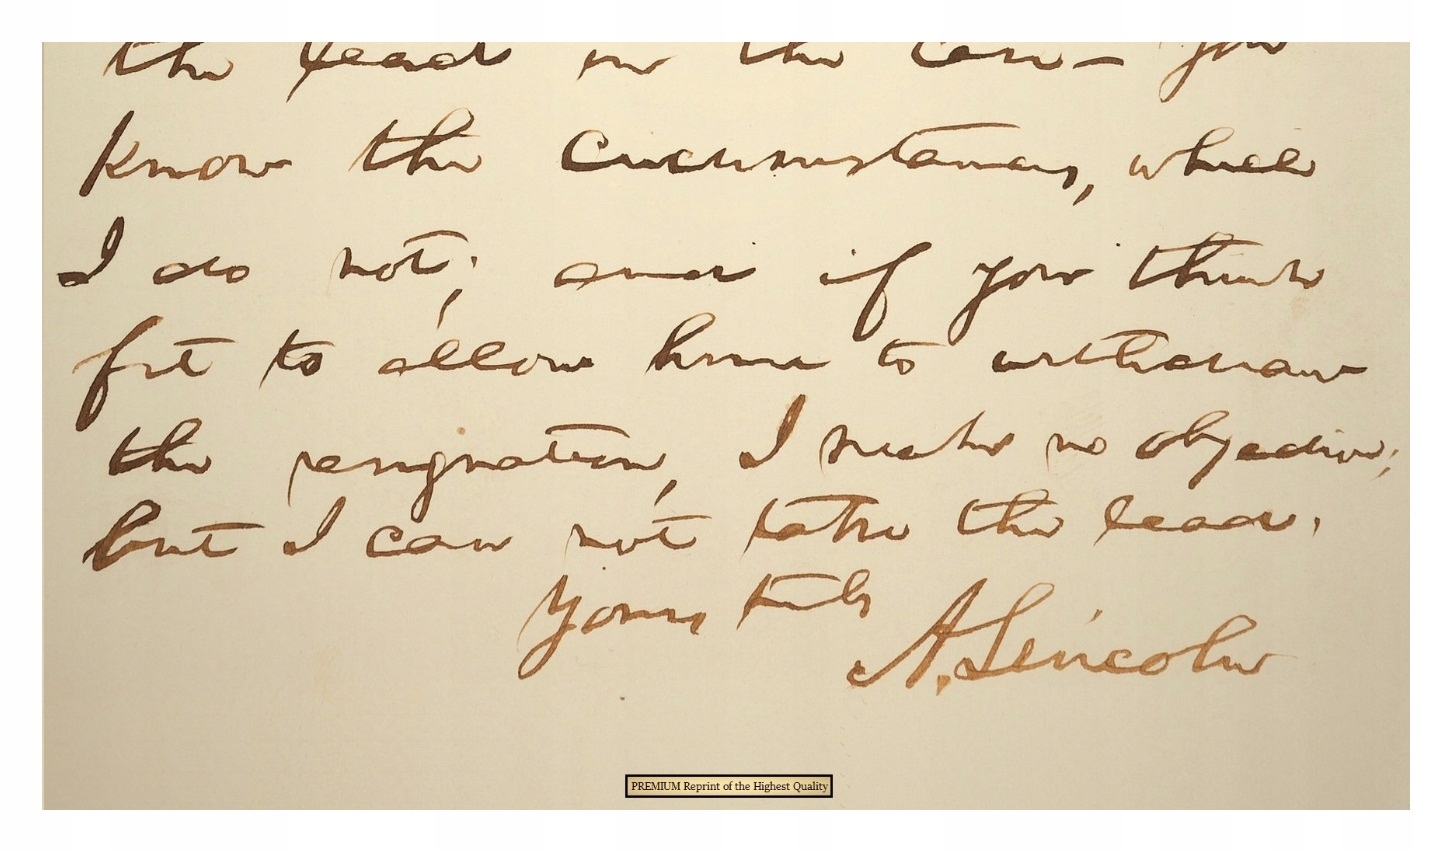 the lead in the case— You
know the circumstances, which
I do not; and if you think
fit to allow him to withdraw
the resignation, I make no objection;
but I can not take the lead.
Yours truly
A. Lincoln
PREMIUM Reprint of the Highest Quality